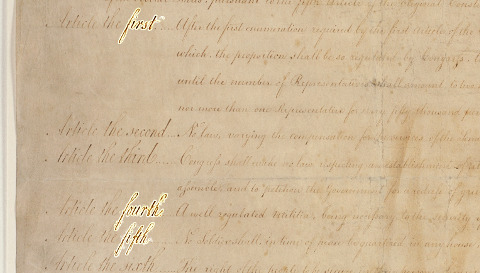 Article the first... After the first enumeration required by the first Article of the
which, the proportion shall be so regulated by Congress, t
until the number of Representatives shall amount to two
nor more than one Representative for every fifty thousand
Article the second... No law, varying the compensation for the services of the Sena
Article the third... Congress shall make no law respecting an establishment of
assemble, and to petition the Government for a redress of
Article the fourth... A well regulated Militia, being necessary to the security
Article the fifth... No Soldier shall, in time of peace be quartered in any house
Article the sixth... The right of the people